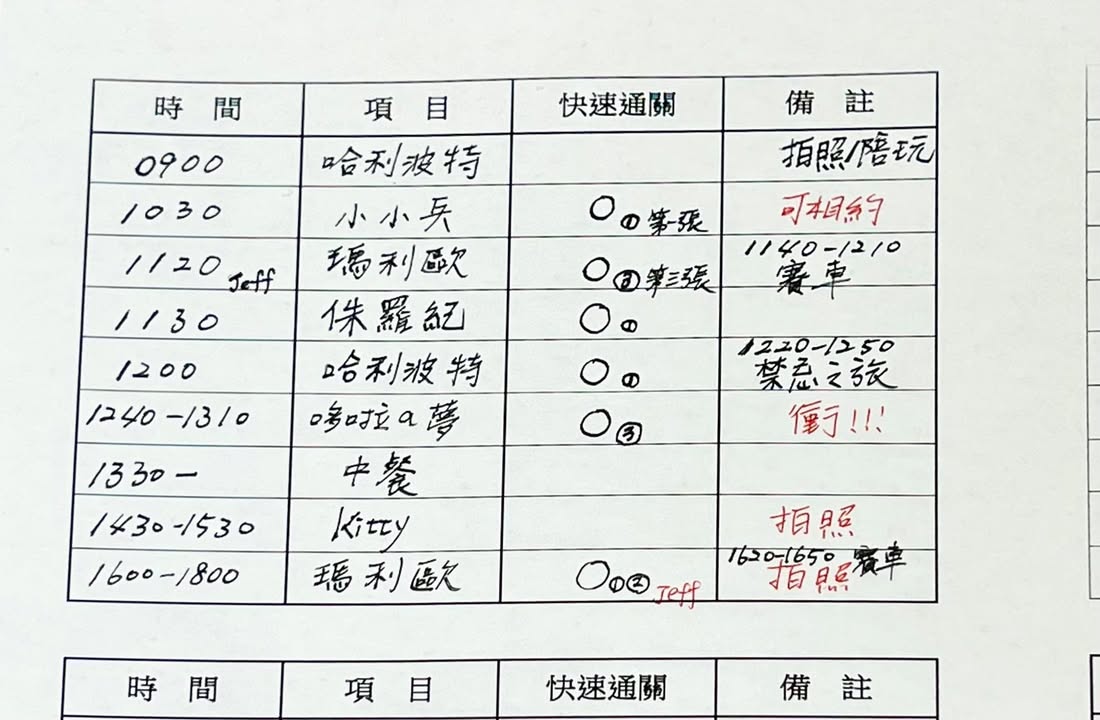 時 間 項 目 快速通關 備 註
0900 哈利波特 拍照/陪玩
1030 小小兵 ○ ① 第一張 可相約
1120 Jeff 瑪利歐 ○ ② 第三張 1140-1210
賽車
1130 侏羅紀 ○ ①
1200 哈利波特 ○ ① 1220-1250
禁忌之旅
1240-1310 哆啦a夢 ○ ③ 衝!!!
1330- 中餐
1430-1530 Kitty 拍照
1600-1800 瑪利歐 ○ ① ② Jeff 1620-1650 賽車
拍照
時 間 項 目 快速通關 備 註